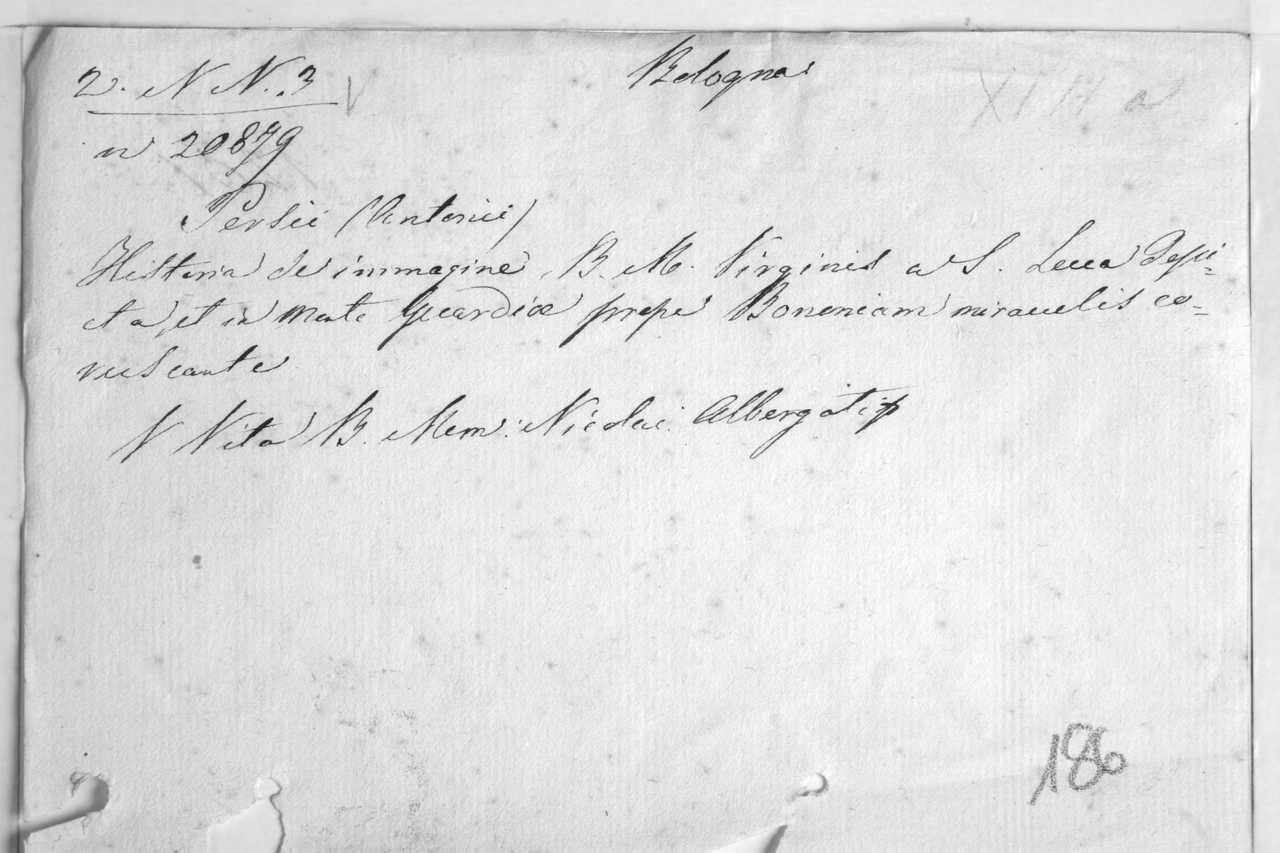 2. N N. 3 V
Bologna
XI H a
n 20879
Persii (Antonii)
Historia de immagine B. M. Virginis a S. Luca Depi-
cta, et in Monte Guardiæ prope Bononiam miraculis co-
ruscante
V Vita B. Mem: Nicolai Albergati
186